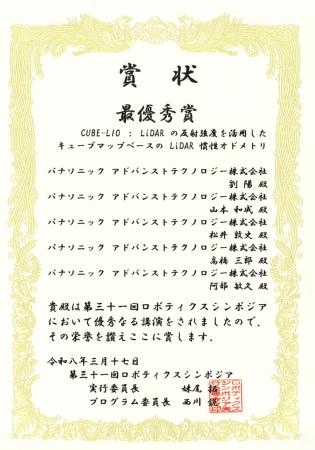 賞状
最優秀賞
CUBE-LIO : LiDAR の反射強度を活用した
キューブマップベースの LiDAR 慣性オドメトリ
パナソニック アドバンストテクノロジー株式会社
劉 陽 殿
パナソニック アドバンストテクノロジー株式会社
山本 和城 殿
パナソニック アドバンストテクノロジー株式会社
松井 敦史 殿
パナソニック アドバンストテクノロジー株式会社
高橋 三郎 殿
パナソニック アドバンストテクノロジー株式会社
阿部 敏久 殿
貴殿は第三十一回ロボティクスシンポジア
において優秀なる講演をされましたので、
その栄誉を讃えここに賞します。
令和八年三月十七日
第三十一回ロボティクスシンポジア
実行委員長 妹尾 拓
プログラム委員長 西川 鋭